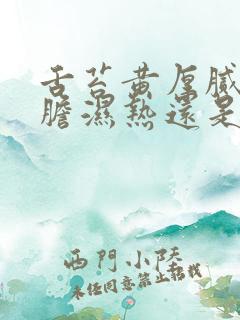 舌苔黄厚腻
膽濕熱還是
西門小陸
未经同意禁止转载